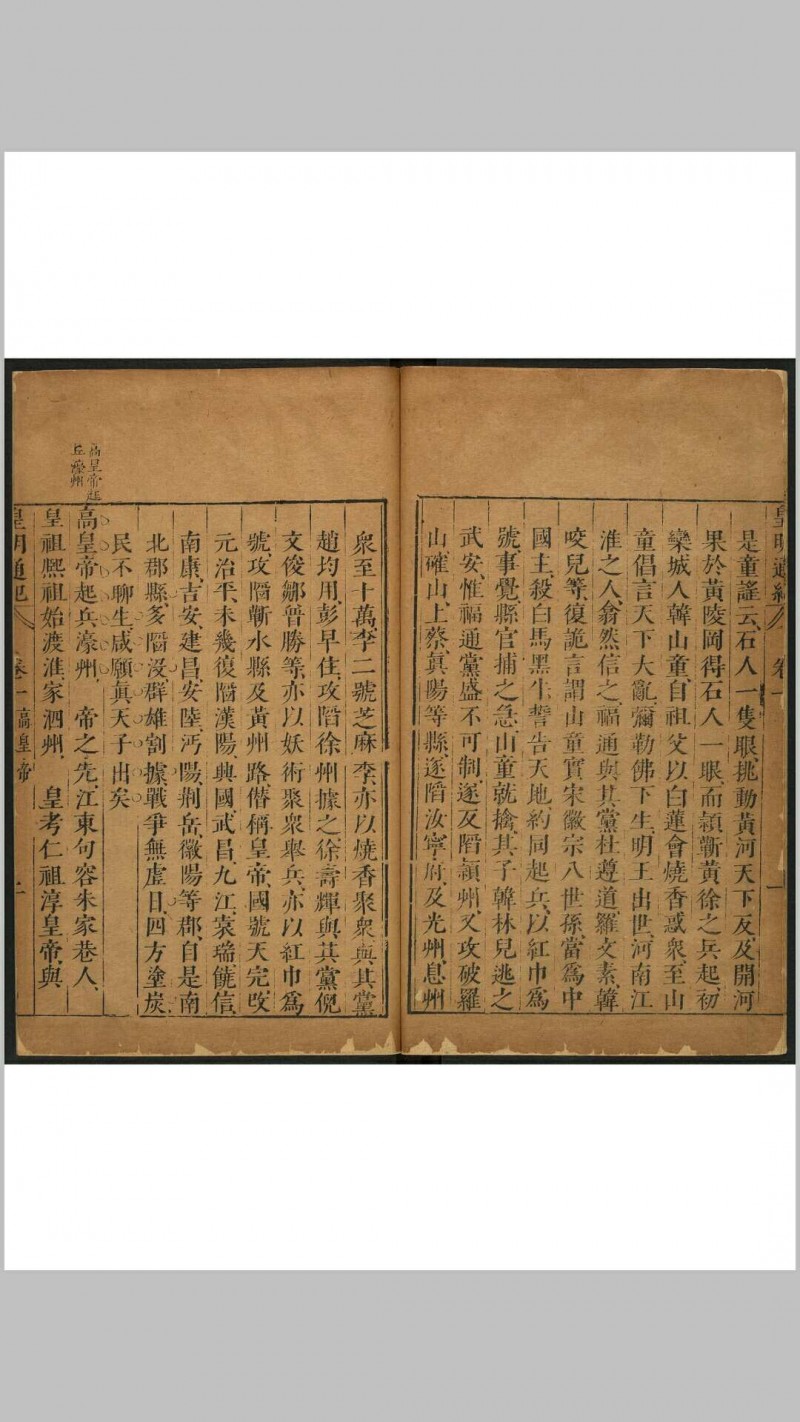 皇明通紀 卷一 一
是童謠云石人一隻眼挑動黃河天下反及開河
果於黃陵岡得石人一眼而潁蘄黃徐之兵起初
欒城人韓山童自祖父以白蓮會燒香惑衆至山
童倡言天下大亂彌勒佛下生明王出世河南江
淮之人翕然信之福通與其黨杜遵道羅文素韓
咬兒等復詭言謂山童實宋徽宗八世孫當爲中
國主殺白馬黑牛誓告天地約同起兵以紅巾爲
號事覺縣官捕之急山童就擒其子韓林兒逃之
武安惟福通黨盛不可制遂反陷潁州又攻破羅
山確山上蔡眞陽等縣遂陷汝寧府及光州息州
衆至十萬李二號芝麻李亦以燒香聚衆與其黨
趙均用彭早住攻陷徐州據之徐壽輝與其黨倪
文俊鄒晉勝等亦以妖術聚衆舉兵亦以紅巾爲
號攻陷蘄水縣及黃州路僭稱皇帝國號天完改
元治平未幾復陷漢陽興國武昌九江袁瑞饒信
南康吉安建昌安陸沔陽荊岳徽陽等郡自是南
北郡縣多陷沒群雄割據戰爭無虛日四方塗炭
民不聊生咸願眞天子出矣
高皇帝起
兵濠州
高皇帝起兵濠州 帝之先江東句容朱家巷人
皇祖熙祖始渡淮家泗州 皇考仁祖淳皇帝與
皇明通紀 卷一高皇帝 二